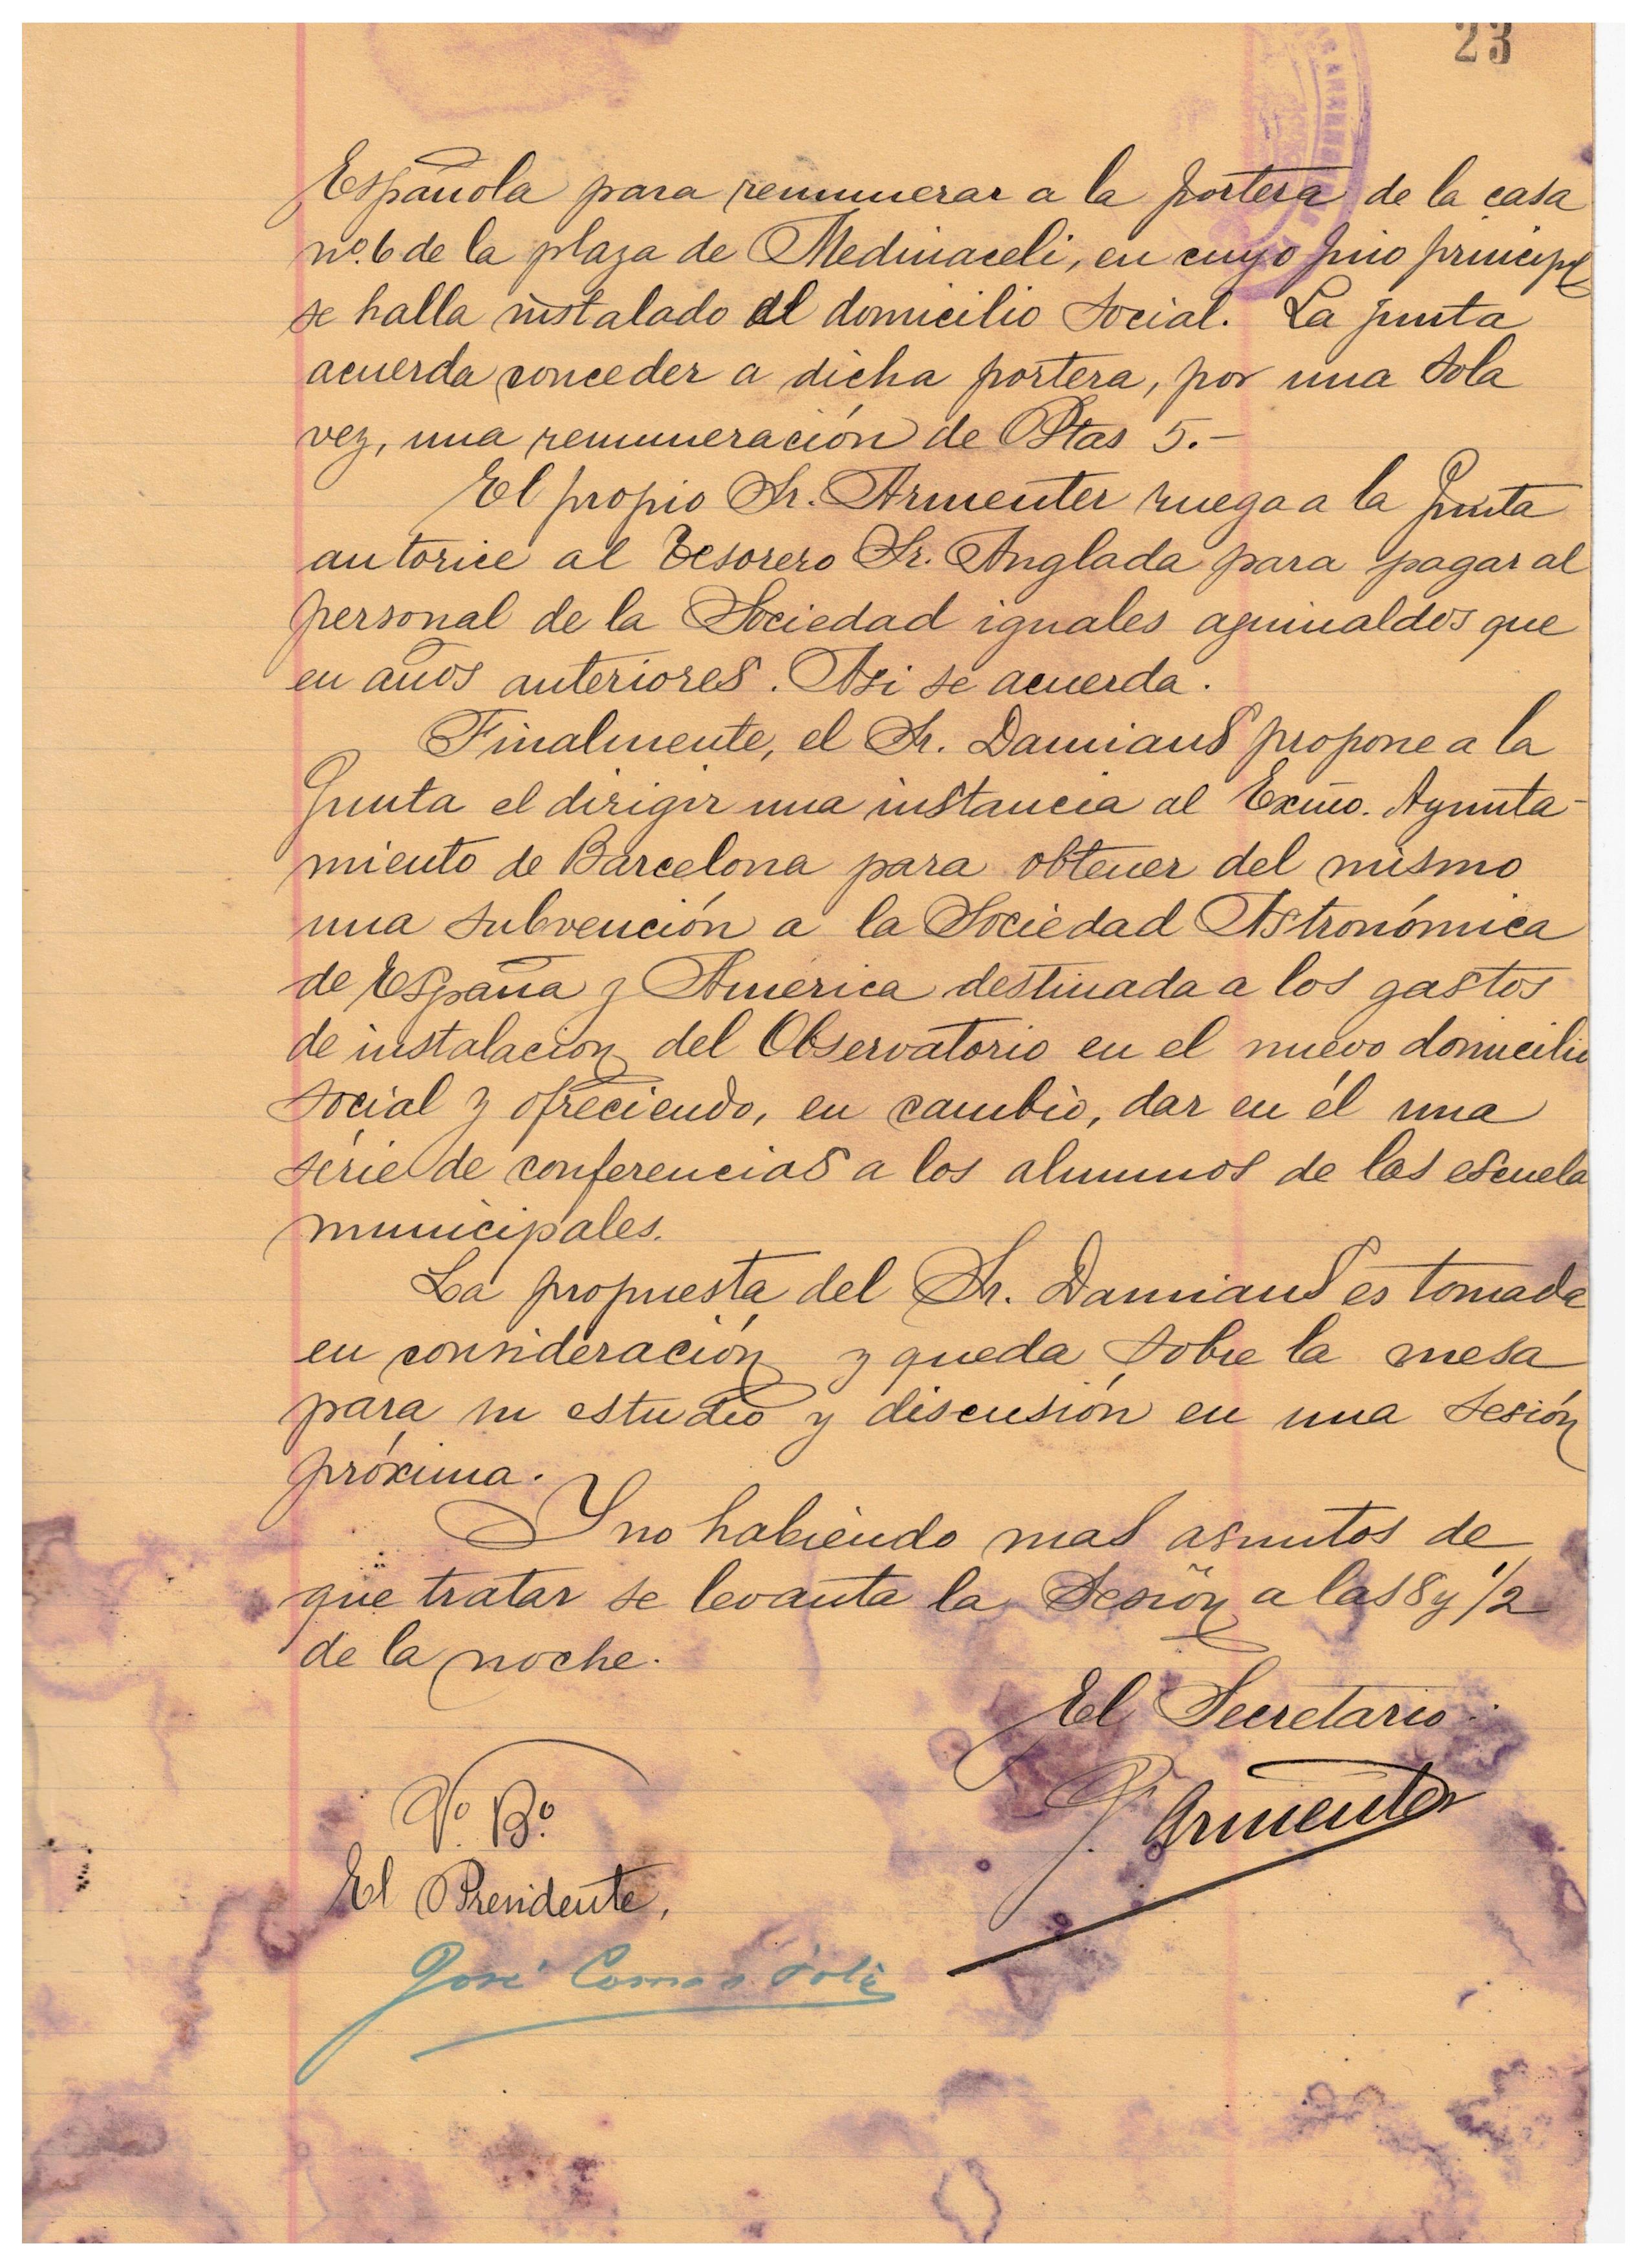 23
Española para remunerar a la portera de la casa
nº. 6 de la plaza de Medinaceli, en cuyo piso principl
se halla instalado el domicilio social. La junta
acuerda conceder a dicha portera, por una sola
vez, una remuneración de Ptas 5.-
El propio Sr. Armenter ruega a la Junta
autorice al Tesorero Sr. Anglada para pagar al
personal de la Sociedad iguales aguinaldos que
en años anteriores. Asi se acuerda.
Finalmente, el Sr. Damians propone a la
Junta el dirigir una instancia al Exmo. Ayunta-
miento de Barcelona para obtener del mismo
una subvención a la Sociedad Astronómica
de España y América destinada a los gastos
de instalación del Observatorio en el nuevo domicilio
social y ofreciendo, en cambio, dar en él una
série de conferencias a los alumnos de las escuela
municipales.
La propuesta del Sr. Damians es tomada
en consideración y queda sobre la mesa
para su estudio y discusión en una sesión
próxima.
Y no habiendo mas asuntos de
que tratar se levanta la Sesión a las 8 y 1/2
de la noche.
El Secretario
Armenter
Vº. Bº.
El Presidente,
José Comas Solà